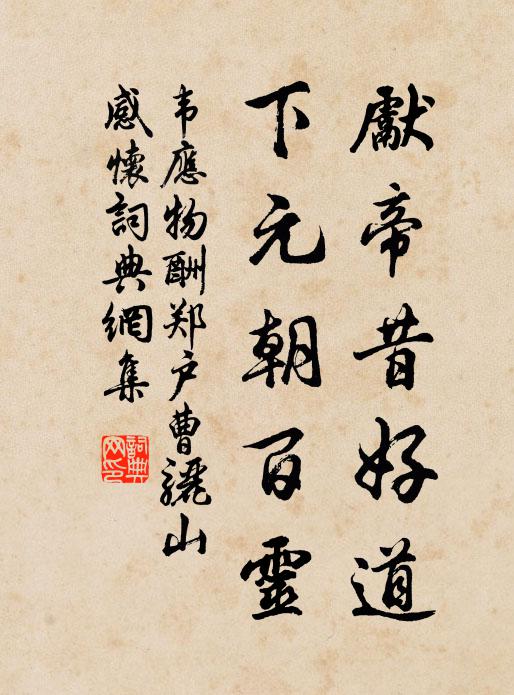 獻帝昔好道
下元朝百靈
韦應物酬郑户曹骊山
感懷詞典網集
詞典
网印